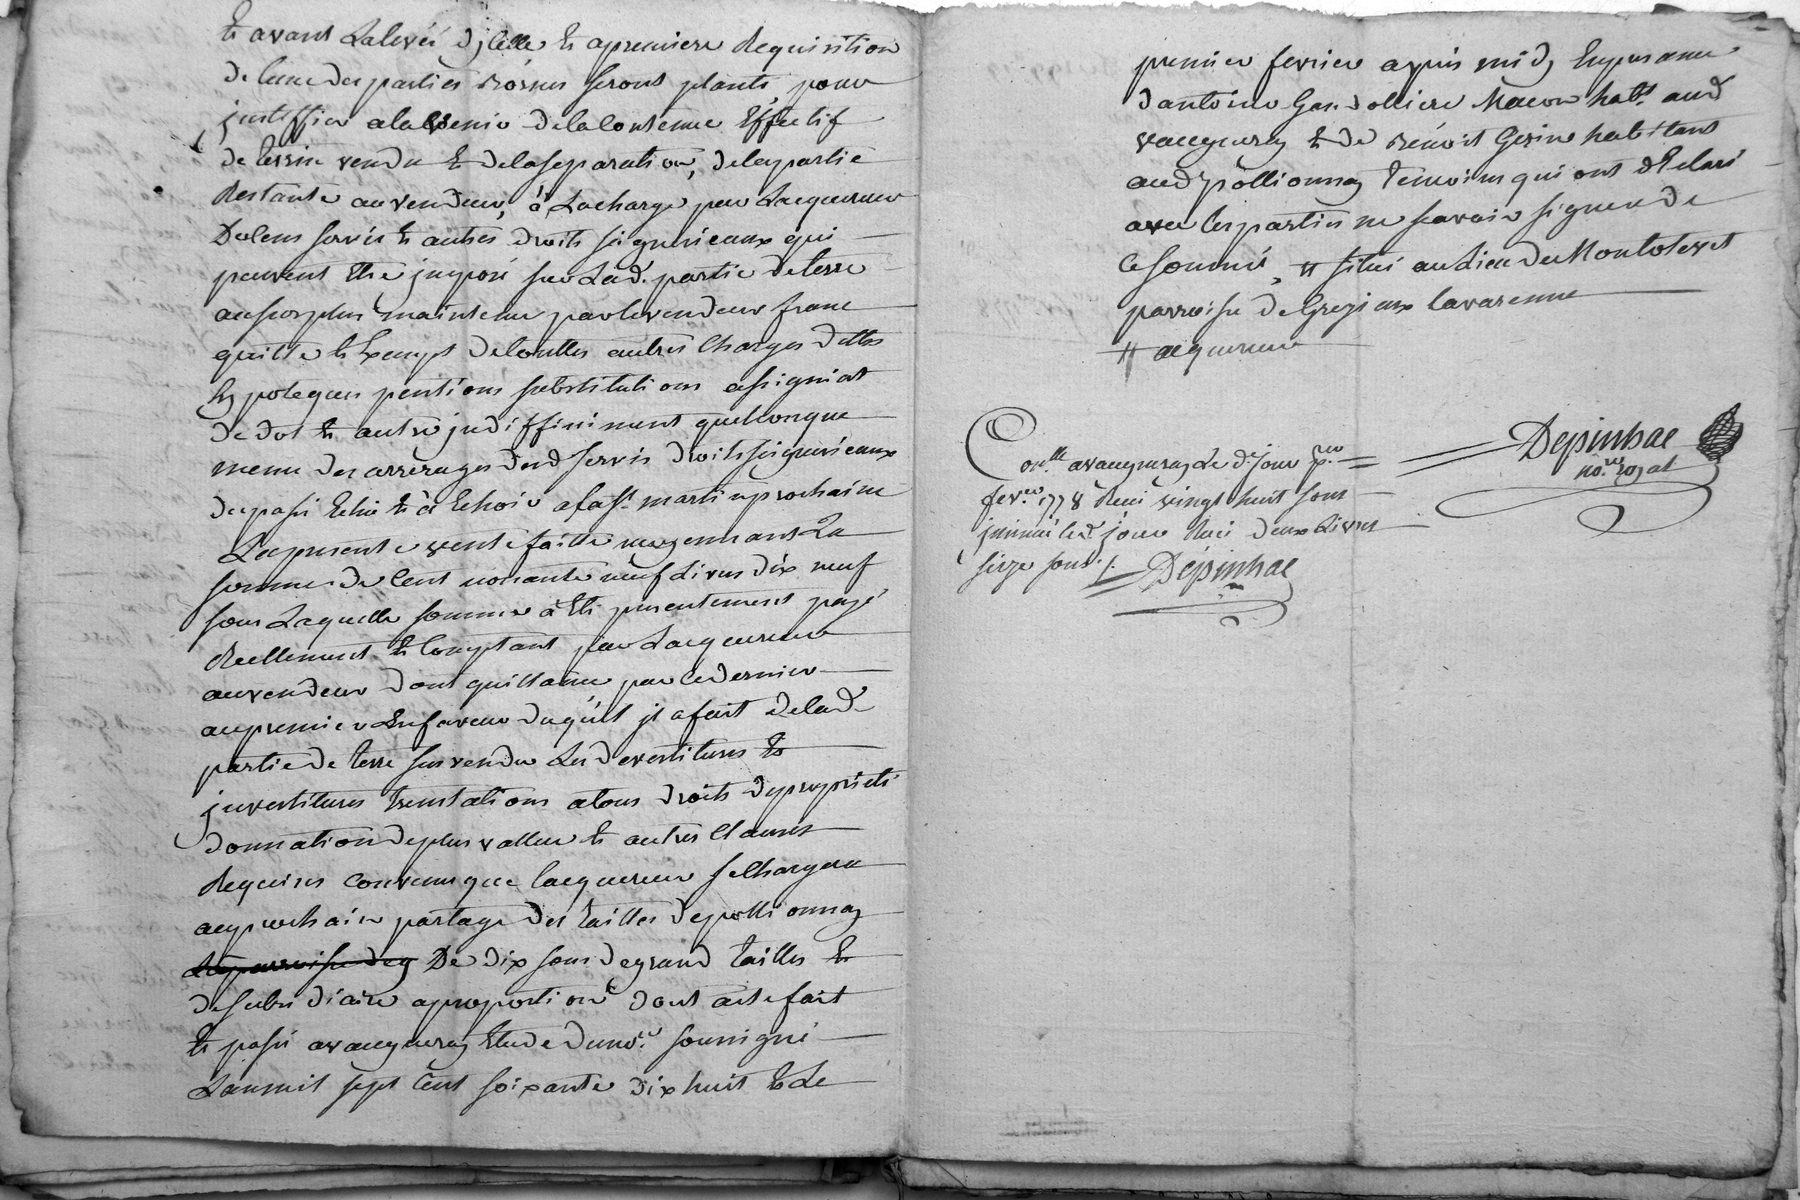 et avant Lalevée d'jcelle et apremiere Requisition
de lune des parties bornes seront plantés, pour
justiffier alavenir delacontenue Effectif
de terrin vendu et delaseparation, delapartie
Restante auvendeur, à Lacharge par Lacquereur
Delens servis et autres droits seigneurieaux qui
peuvent etre jmposé sur Lad. partie deterre
ausurplus maintenue parlevendeur franc
quitte et Exempt detouttes autres Charges dettes
hypoteques pentions substitutions assigniat
de dot et autre jndiffiniment quelconque
meme des arrerages desd servis droits seigneurieaux
dupassé Echu et à Echoir a la St. martin prochaine
Lapresente vente faitte moyennant La
somme de Cent nonante neuf Livres dix neuf
sous Laquelle somme à Eté presentement payé
Reellement et Comptant par Lacquereur
auvendeur dont quittance par cedernier
aupremier Enfaveur duquel jl afait delad.
partie de terre susvendue Les devestitures et
jnvestitures trenslations atous droits depropriete
donnation deplus valleur et autres Clauses
Requises convenus que lacquereur seChargera
auprochain partage des tailles depollionnay
Laparroisse dey De dix sous degrand tailles et
desubsidiaire aproportion dont acte fait
et passé avaugneray Etude dunore. soussigné
Lanmil sept Cent soixante dix huit et Le
premier fevrier apres midy Enpresance
d'antoine Gas dolliere Macon habt. aud
vaugneray et de benoit Gerin habitant
aud pollionnay temoins qui ont declaré
avec lesparties ne scavoir signer de
ce sommé, # situé aulieu du Montolvet
parroisse de Gregieux lavarenne
# acquereur
Depinhac
no.re royal
Con.llé avaugneray Le d. jour p.er
fev.er 1778 Reçu vingt huit sous
jnsinué led jour Reçu deux Livres
seize sous ./. Depinhac